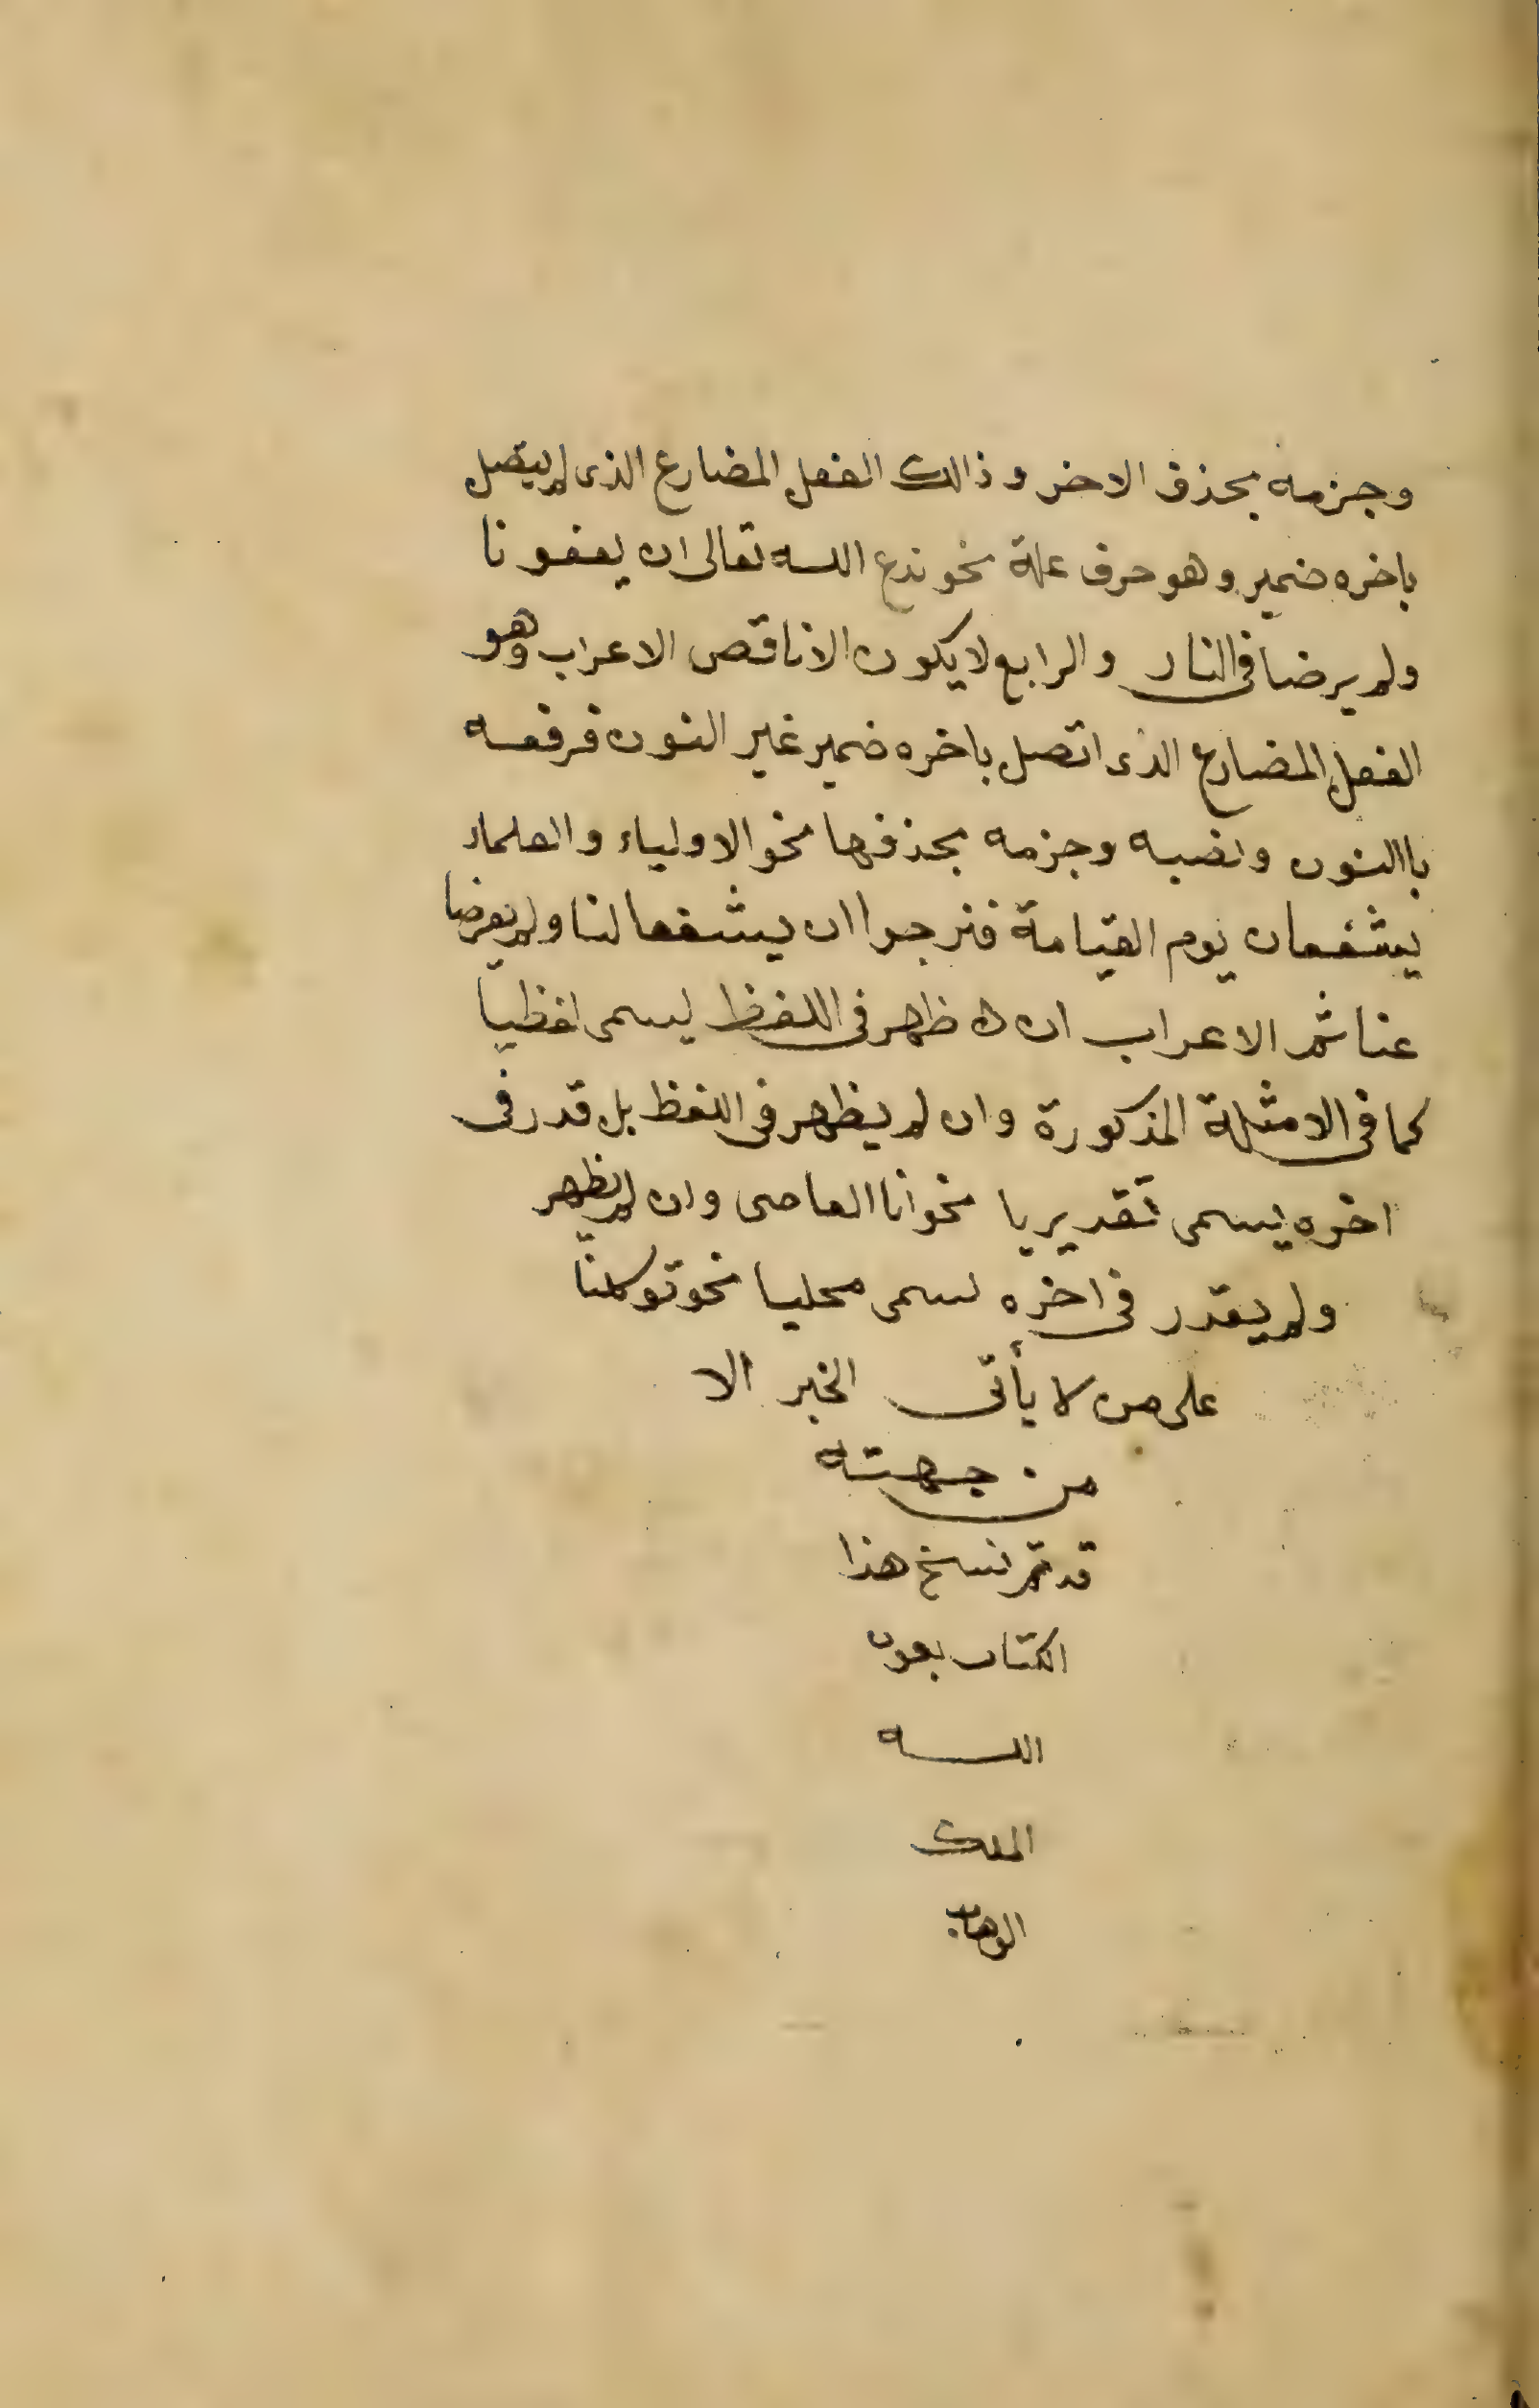 وجزمه بحذف الاخر وذالك الفعل المضارع الذى لم يتصل
باخره ضمير وهو حرف علة نحو ندع الله تعالى ان يعفونا
ولم يرضا فى النار والرابع لا يكون الا ناقص الاعراب وهو
الفعل المضارع الذى اتصل باخره ضمير غير النون فرفعه
باالنون ونصبه وجزمه بحذفها نحو الاولياء والعلماء
يشفعان يوم القيامة فنرجوا ان يشفعا لنا ولم يعرضا
عنا ثم الاعراب ان ظهر فى اللفظ يسمى لفظيا
كما فى الامثلة المذكورة وان لم يظهر فى اللفظ بل قدر فى
اخره يسمى تقديريا نحو انا العاصى وان لم يظهر
ولم يقدر فى اخره يسمى محليا نحو توكلنا
على من لا يأتى الخير الا
من جهته
قد تم نسخ هذا
الكتاب بعون
الله
الملك
الوهاب